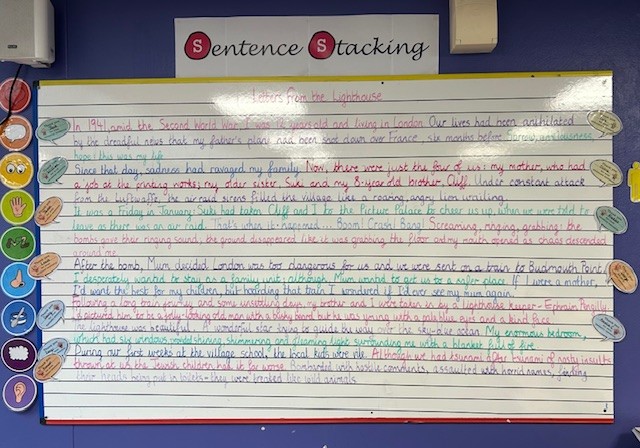 Sentence Stacking
Letters from the Lighthouse
In 1941, amid the Second World War, I was 12 years old and living in London. Our lives had been anihilated
by the dreadful news that my father's plane had been shot down over France, six months before. Sorrow, anxiousness,
hope: this was my life.
Since that day, sadness had ravaged my family. Now, there were just the four of us: my mother, who had
a job at the printing works; my older sister, Suki and my 8-year old brother, Cliff. Under constant attack
from the Luftwaffe, the air raid sirens filled the village like a roaring, angry lion wailing.
It was a Friday in January: Suki had taken Cliff and I to the Picture Palace to cheer us up, when we were told to
leave as there was an air raid. That's when it happened... Boom! Crash! Bang! Screaming, ringing, grabbing: the
bombs gave their ringing sound, the ground disappeared like it was grabbing the floor and my mouth opened as chaos descended
around me.
After the bomb, Mum decided London was too dangerous for us and we were sent on a train to Budmouth Point.
I desperately wanted to stay as a family unit; although Mum wanted to get us to a safer place. If I were a mother,
I'd want the best for my children, but boarding that train I wondered if I'd ever see my mum again.
Following a long train journey and some unsettling days, my brother and I were taken in by a Lighthouse Keeper - Ephraim Pengilly.
I'd pictured him to be a jolly-looking old man with a bushy beard but he was young with pale blue eyes and a kind face.
The lighthouse was beautiful. A wonderful star trying to guide by way over the sky-blue ocean. My enormous bedroom,
which had six windows, shining, shimmering and flaming light surrounding me with a blanket full of fire.
During our first weeks at the village school, the local kids were vile. Although we had tsunami after tsunami of nasty insults
thrown at us the Jewish children had it far worse. Bombarded with hostile comments, assaulted with horrid names, finding
their heads being put in toilets - they were treated like wild animals.